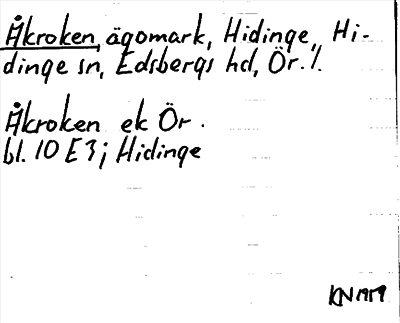 Åkroken, ägomark, Hidinge, Hi-
dinge sn, Edsbergs hd, Ör. /.
Åkroken ek Ör.
bl. 10 E 3; Hidinge
KN 1959